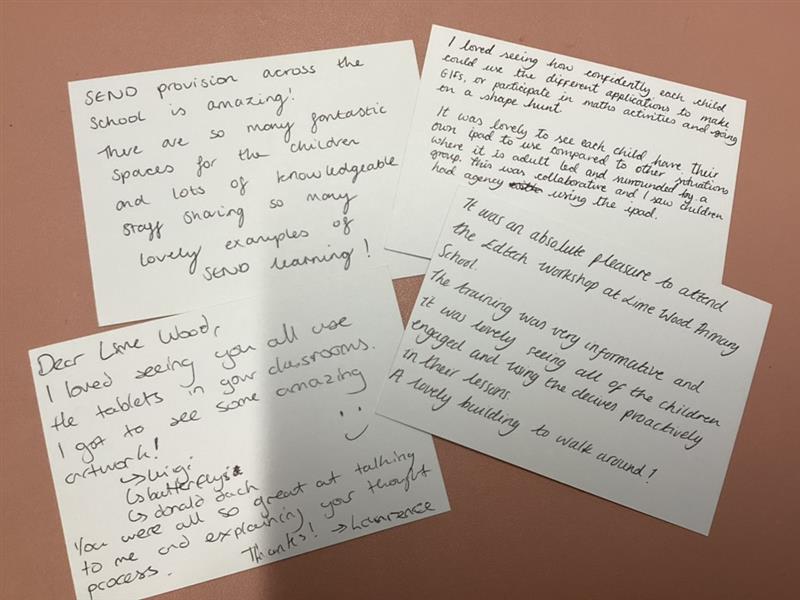 SEND provision across the
school is amazing!
There are so many fantastic
spaces for the children
and lots of knowledgeable
staff sharing so many
lovely examples of
SEND learning!
I loved seeing how confidently each child
could use the different applications to make
GIFS, or participate in maths activities and going
on a shape hunt.
It was lovely to see each child have their
own ipad to use compared to other situations
where it is adult led and surrounded by a
group. This was collaborative and I saw children
had agency using the ipad.
Dear Lime Wood,
I loved seeing you all use
the tablets in your classrooms.
I got to see some amazing
artwork!
→luigi
↳butterfly
↳donald duch
You were all so great at talking
to me and explaining your thought
process.
Thanks! →Lawrence
It was an absolute pleasure to attend
the Edtech workshop at Lime Wood Primary
School.
The training was very informative and
it was lovely seeing all of the children
engaged and using the decives proactively
in their lessons.
A lovely building to walk around!